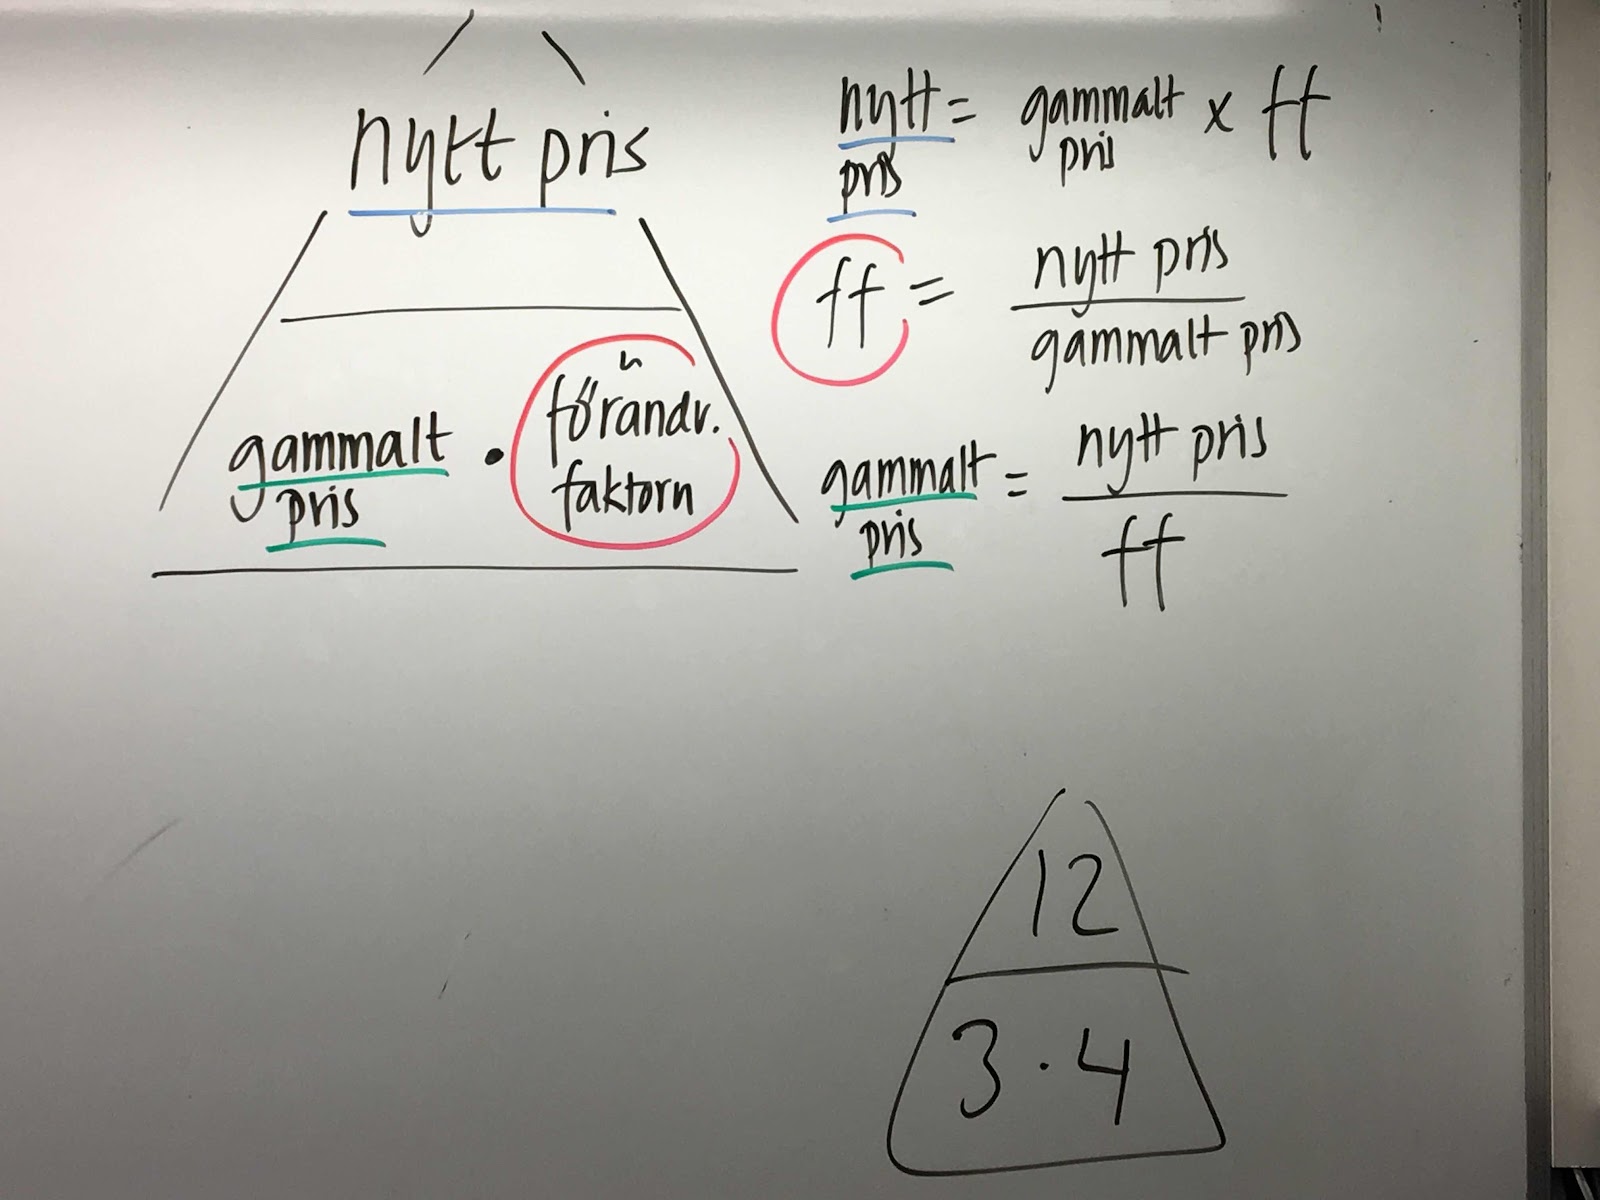 nytt pris
gammalt • förändr.
pris faktorn
nytt = gammalt x ff
pris pris
ff = nytt pris
gammalt pris
gammalt = nytt pris
pris ff
12
3 · 4